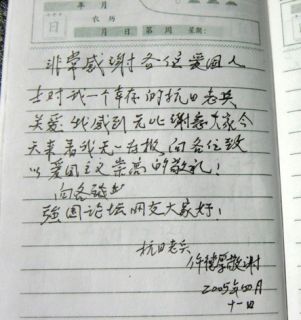 年 月
日
农历
月 日 第 周 星期:
非常感谢各位爱国人
士对我一个幸存的抗日老兵
关爱 我感到无比谢意大家今
天来看我 在报向各位致
以爱国主义崇高的敬礼!
向各
强国论坛网友大家好!
抗日老兵
敬谢
2005年四月
十一日